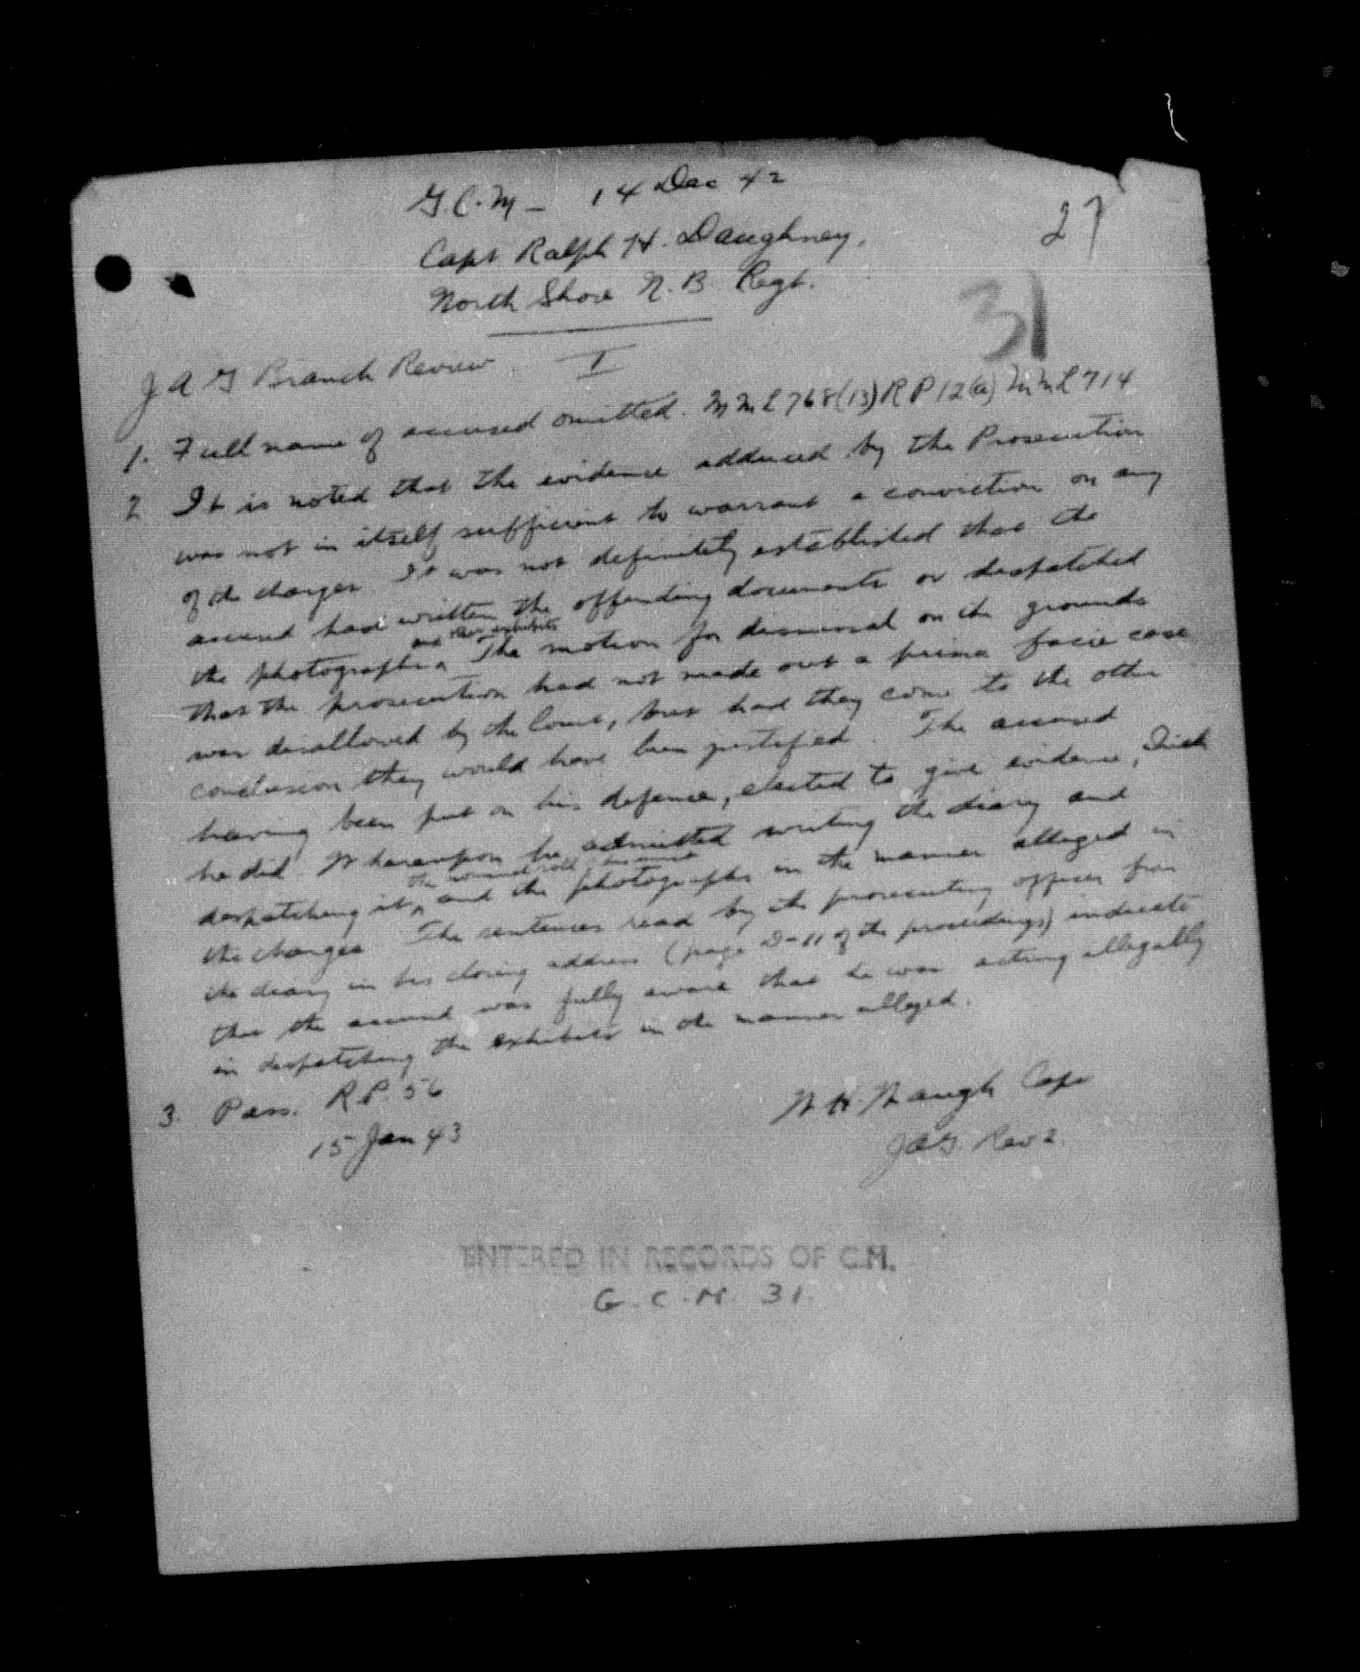 G.C.M - 14 Dec 42
27
Capt Ralph H. Daughney,
North Shore N.B. Regt.
31
J A G Branch Review I
1. Full name of accused omitted. M M L 768(13) R P 12(a) M M L 714
2 It is noted that the evidence adduced by the Prosecution
was not in itself sufficient to warrant a conviction on any
of the charges. It was not definitely established that the
accused had written the offending documents or despatched
the photographs and other exhibits The motion for dismissal on the grounds
that the prosecution had not made out a prima facie case
was disallowed by the Court, but had they come to the other
conclusion they would have been justified. The accused
having been put on his defence, elected to give evidence, which
he did. Whereupon he admitted writing the diary and
despatching it, the nominal roll and the photographs in the manner alleged in
the charges The sentences read by the prosecuting officer from
the diary in his closing address (page D-11 of the proceedings) indicate
that the accused was fully aware that he was acting illegally
in despatching the exhibits in the manner alleged.
3. Pass. R.P. 56
W H Waugh Capt
15 Jan 43
JAG. Rev 2.
ENTERED IN RECORDS OF C.M.
G.C.M. 31.